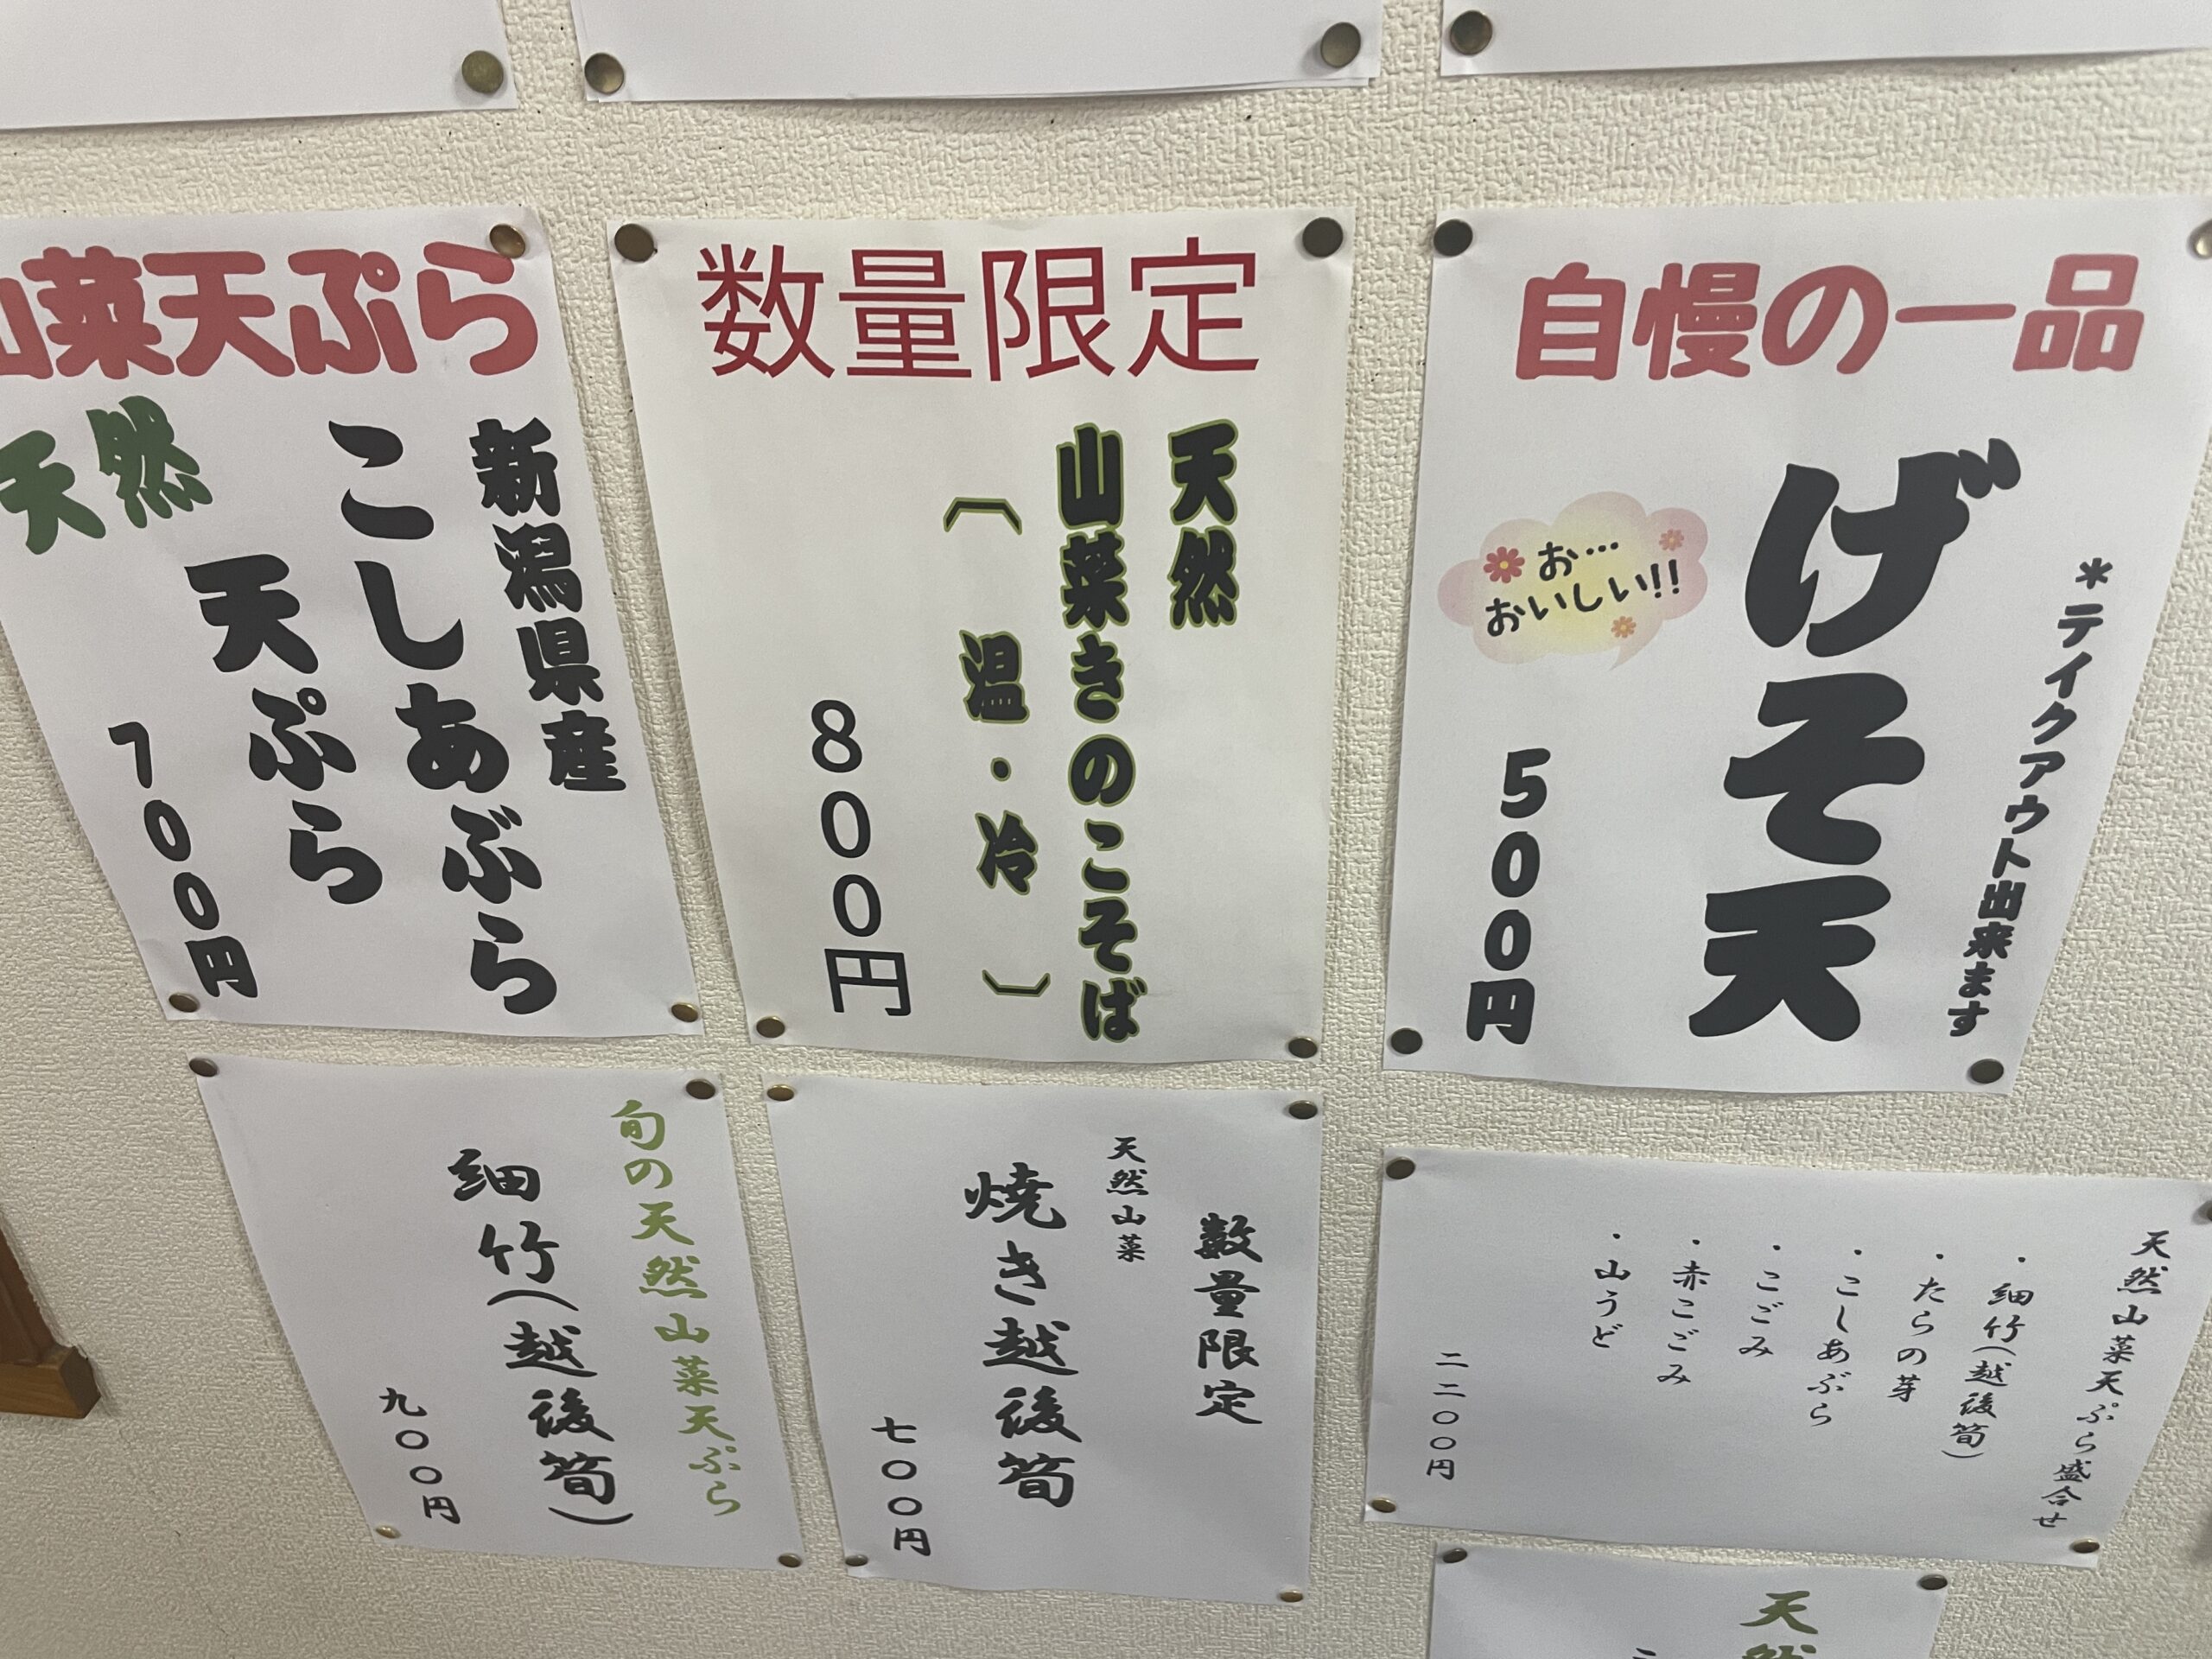 自慢の一品
*テイクアウト出来ます
げそ天
お…
おいしい!!
500円
数量限定
天然
山菜きのこそば
(温・冷)
800円
山菜天ぷら
新潟県産
こしあぶら
天ぷら
天然
700円
天然山菜天ぷら盛合せ
・細竹(越後筍)
・たらの芽
・こしあぶら
・こごみ
・赤こごみ
・山うど
二二〇〇円
数量限定
天然山菜
焼き越後筍
七〇〇円
旬の天然山菜天ぷら
細竹(越後筍)
九〇〇円
天然